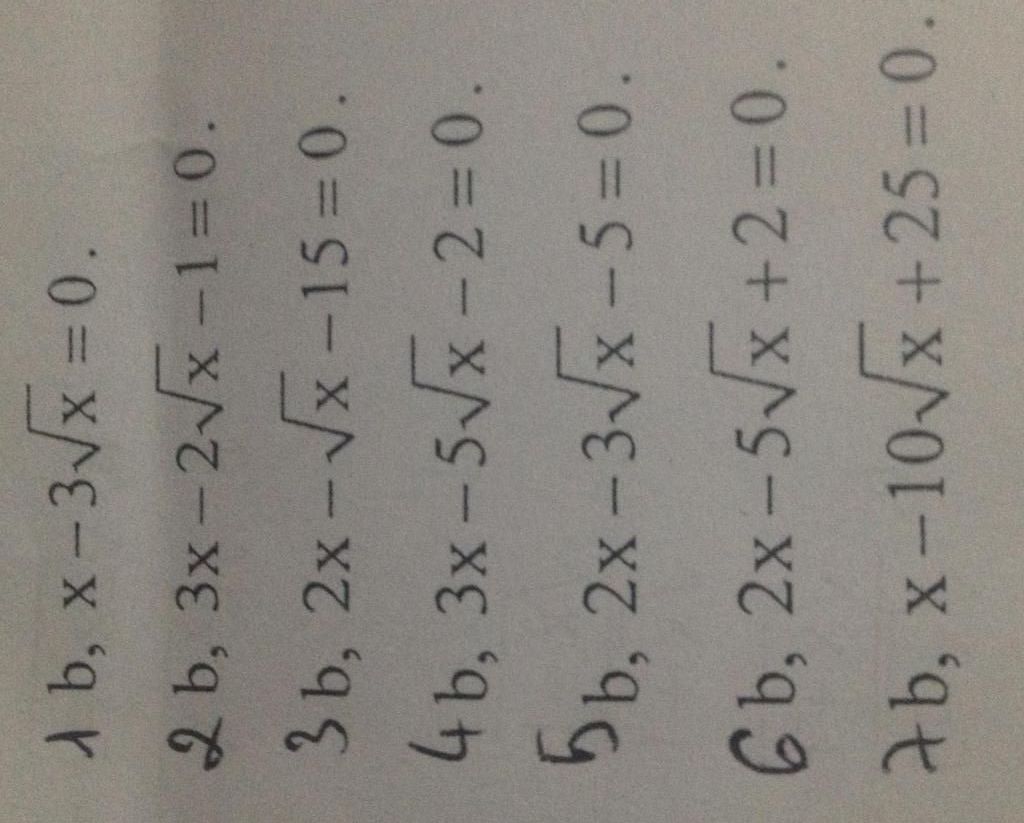 1 b, x − 3√x = 0.
2 b, 3x − 2√x − 1 = 0.
3 b, 2x − √x − 15 = 0.
4 b, 3x − 5√x − 2 = 0.
5 b, 2x − 3√x − 5 = 0.
6 b, 2x − 5√x + 2 = 0.
7 b, x − 10√x + 25 = 0.